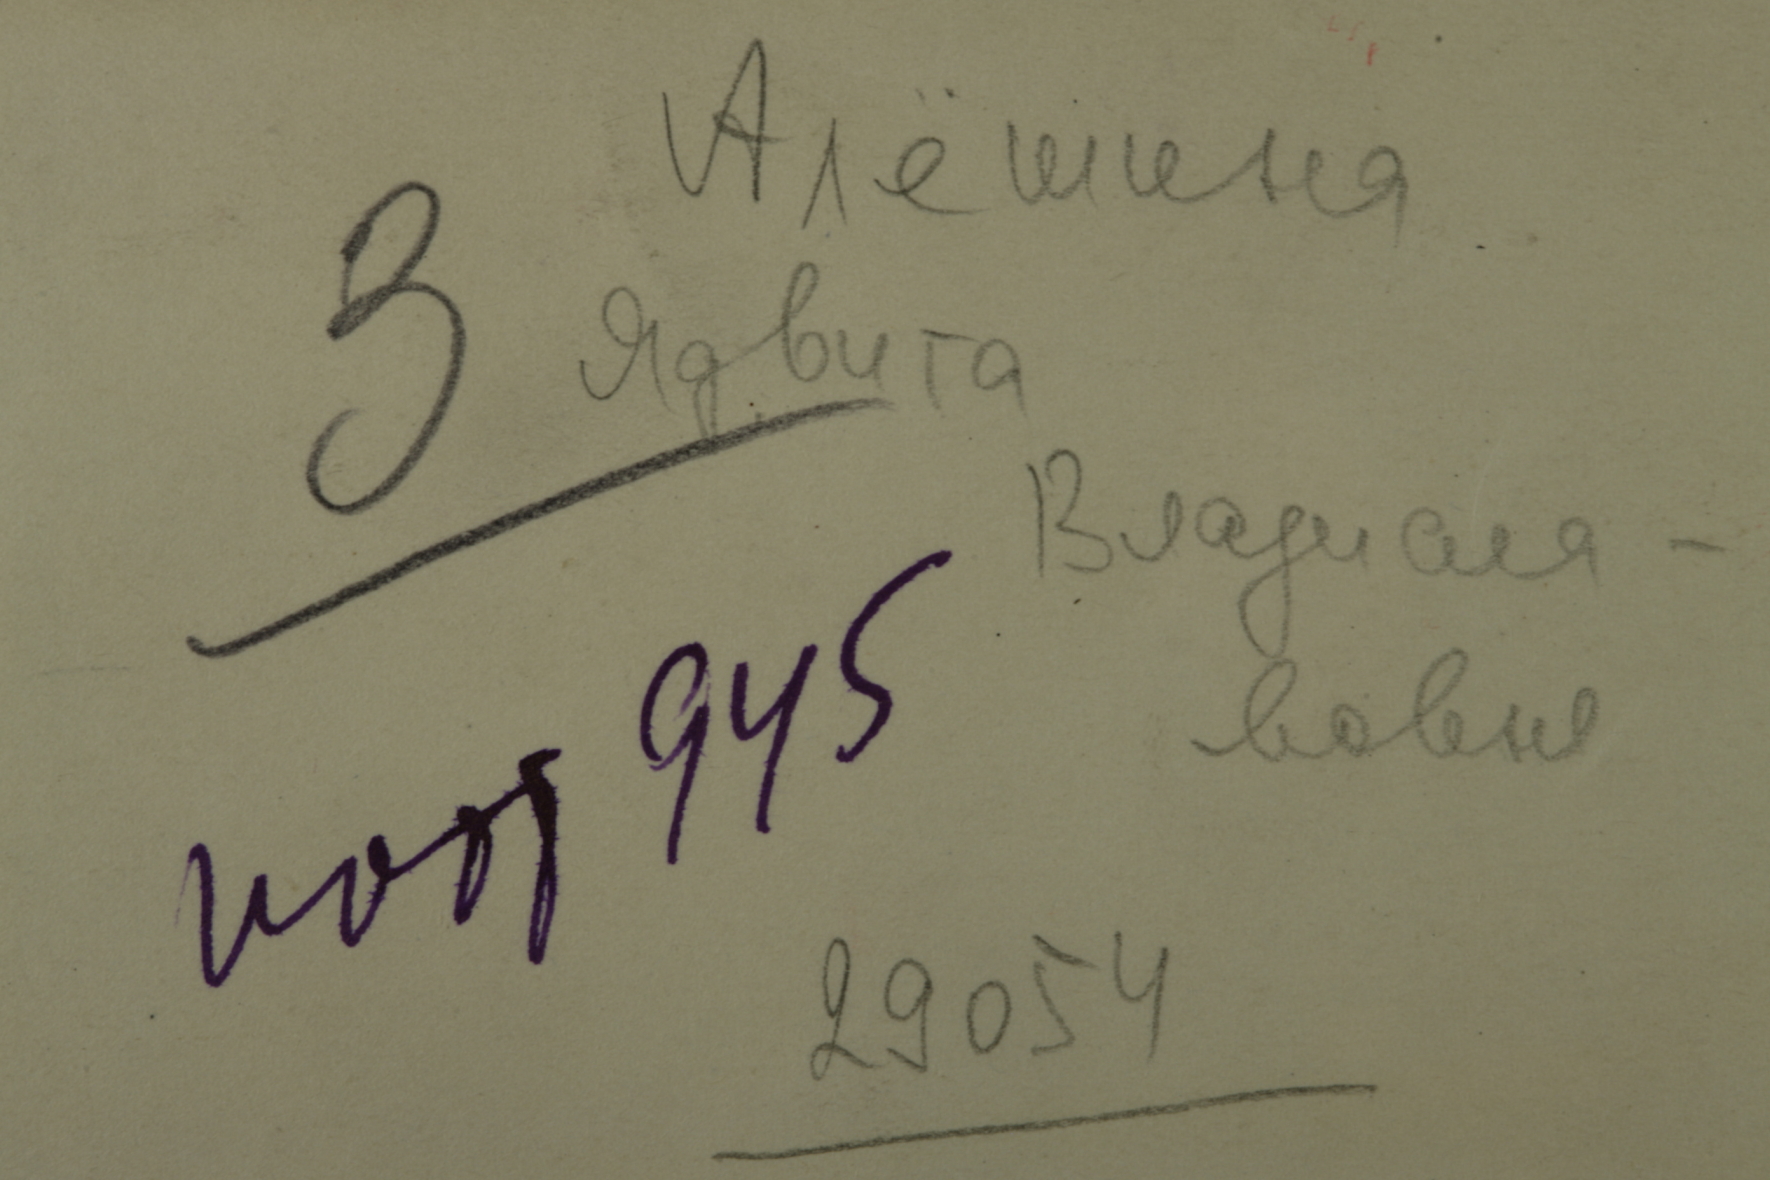 Алёшина
3
Ядвига
Владисла-
вовна
945
29054